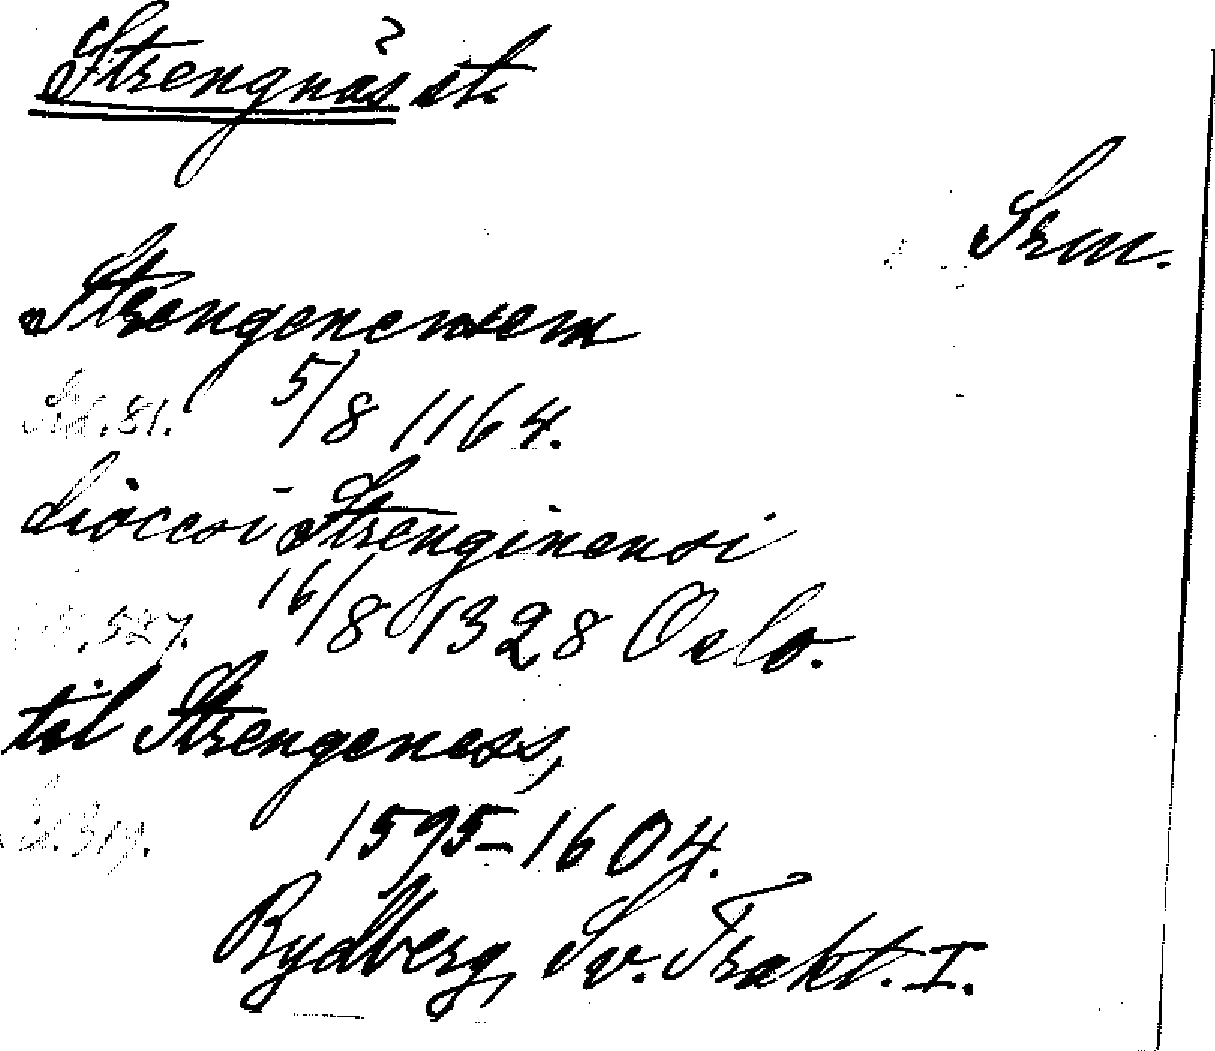 Strengnäs st.
Srm.
Strengenensem
S. 81. 5/8 1164.
dioccesi Strenginensi
S. 527. 16/8 1328 Oslo.
til Strengeness,
1595-1604.
Rydberg, Sv. Trakt. I.